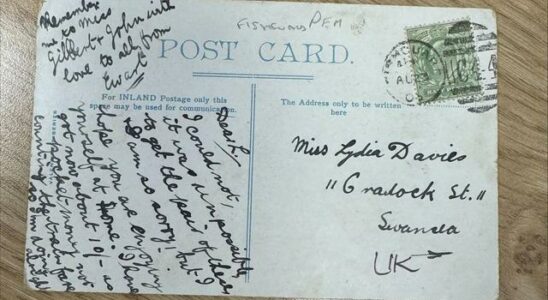 Remember
me to Miss
Gilbert & John with
love to all from
Ewart
FISHGUARD PEM
POST CARD.
For INLAND Postage only this
space may be used for communication.
The Address only to be written
here
Dear L,
I could not,
it was impossible
to get the pair of these
I am so sorry! but I
hope you are enjoying
yourself at home. I have
got now about 10/- as
pocket money not
counting the train fare
so I'm doing
alright
Miss Lydia Davies
"11 Cradock St."
Swansea
UK
FISHGUARD
AU